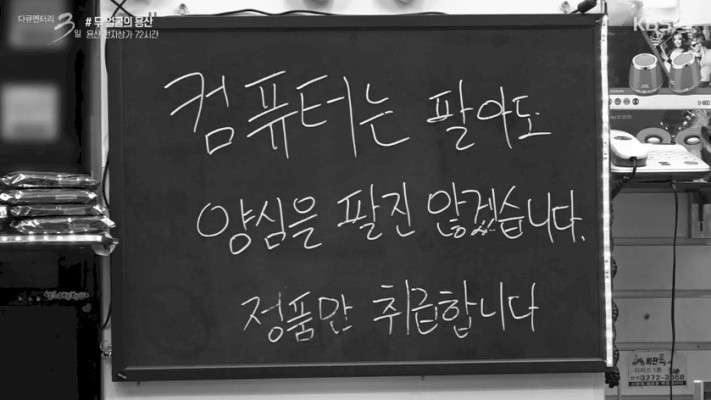 다큐멘터리 3일
# 두 얼굴의 용산
용산 전자상가 72시간
컴퓨터는 팔아도
양심을 팔진 않겠습니다.
정품만 취급합니다